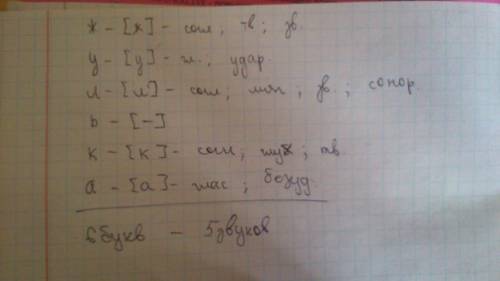 ж - [ж] - согл, тв, зв.
у - [у] - гл., удар.
л - [л'] - согл, мяг, зв.; сонор.
ь - [-]
к - [к] - согл, глух; тв.
а - [а] - глас, безуд.
6 букв - 5 звуков